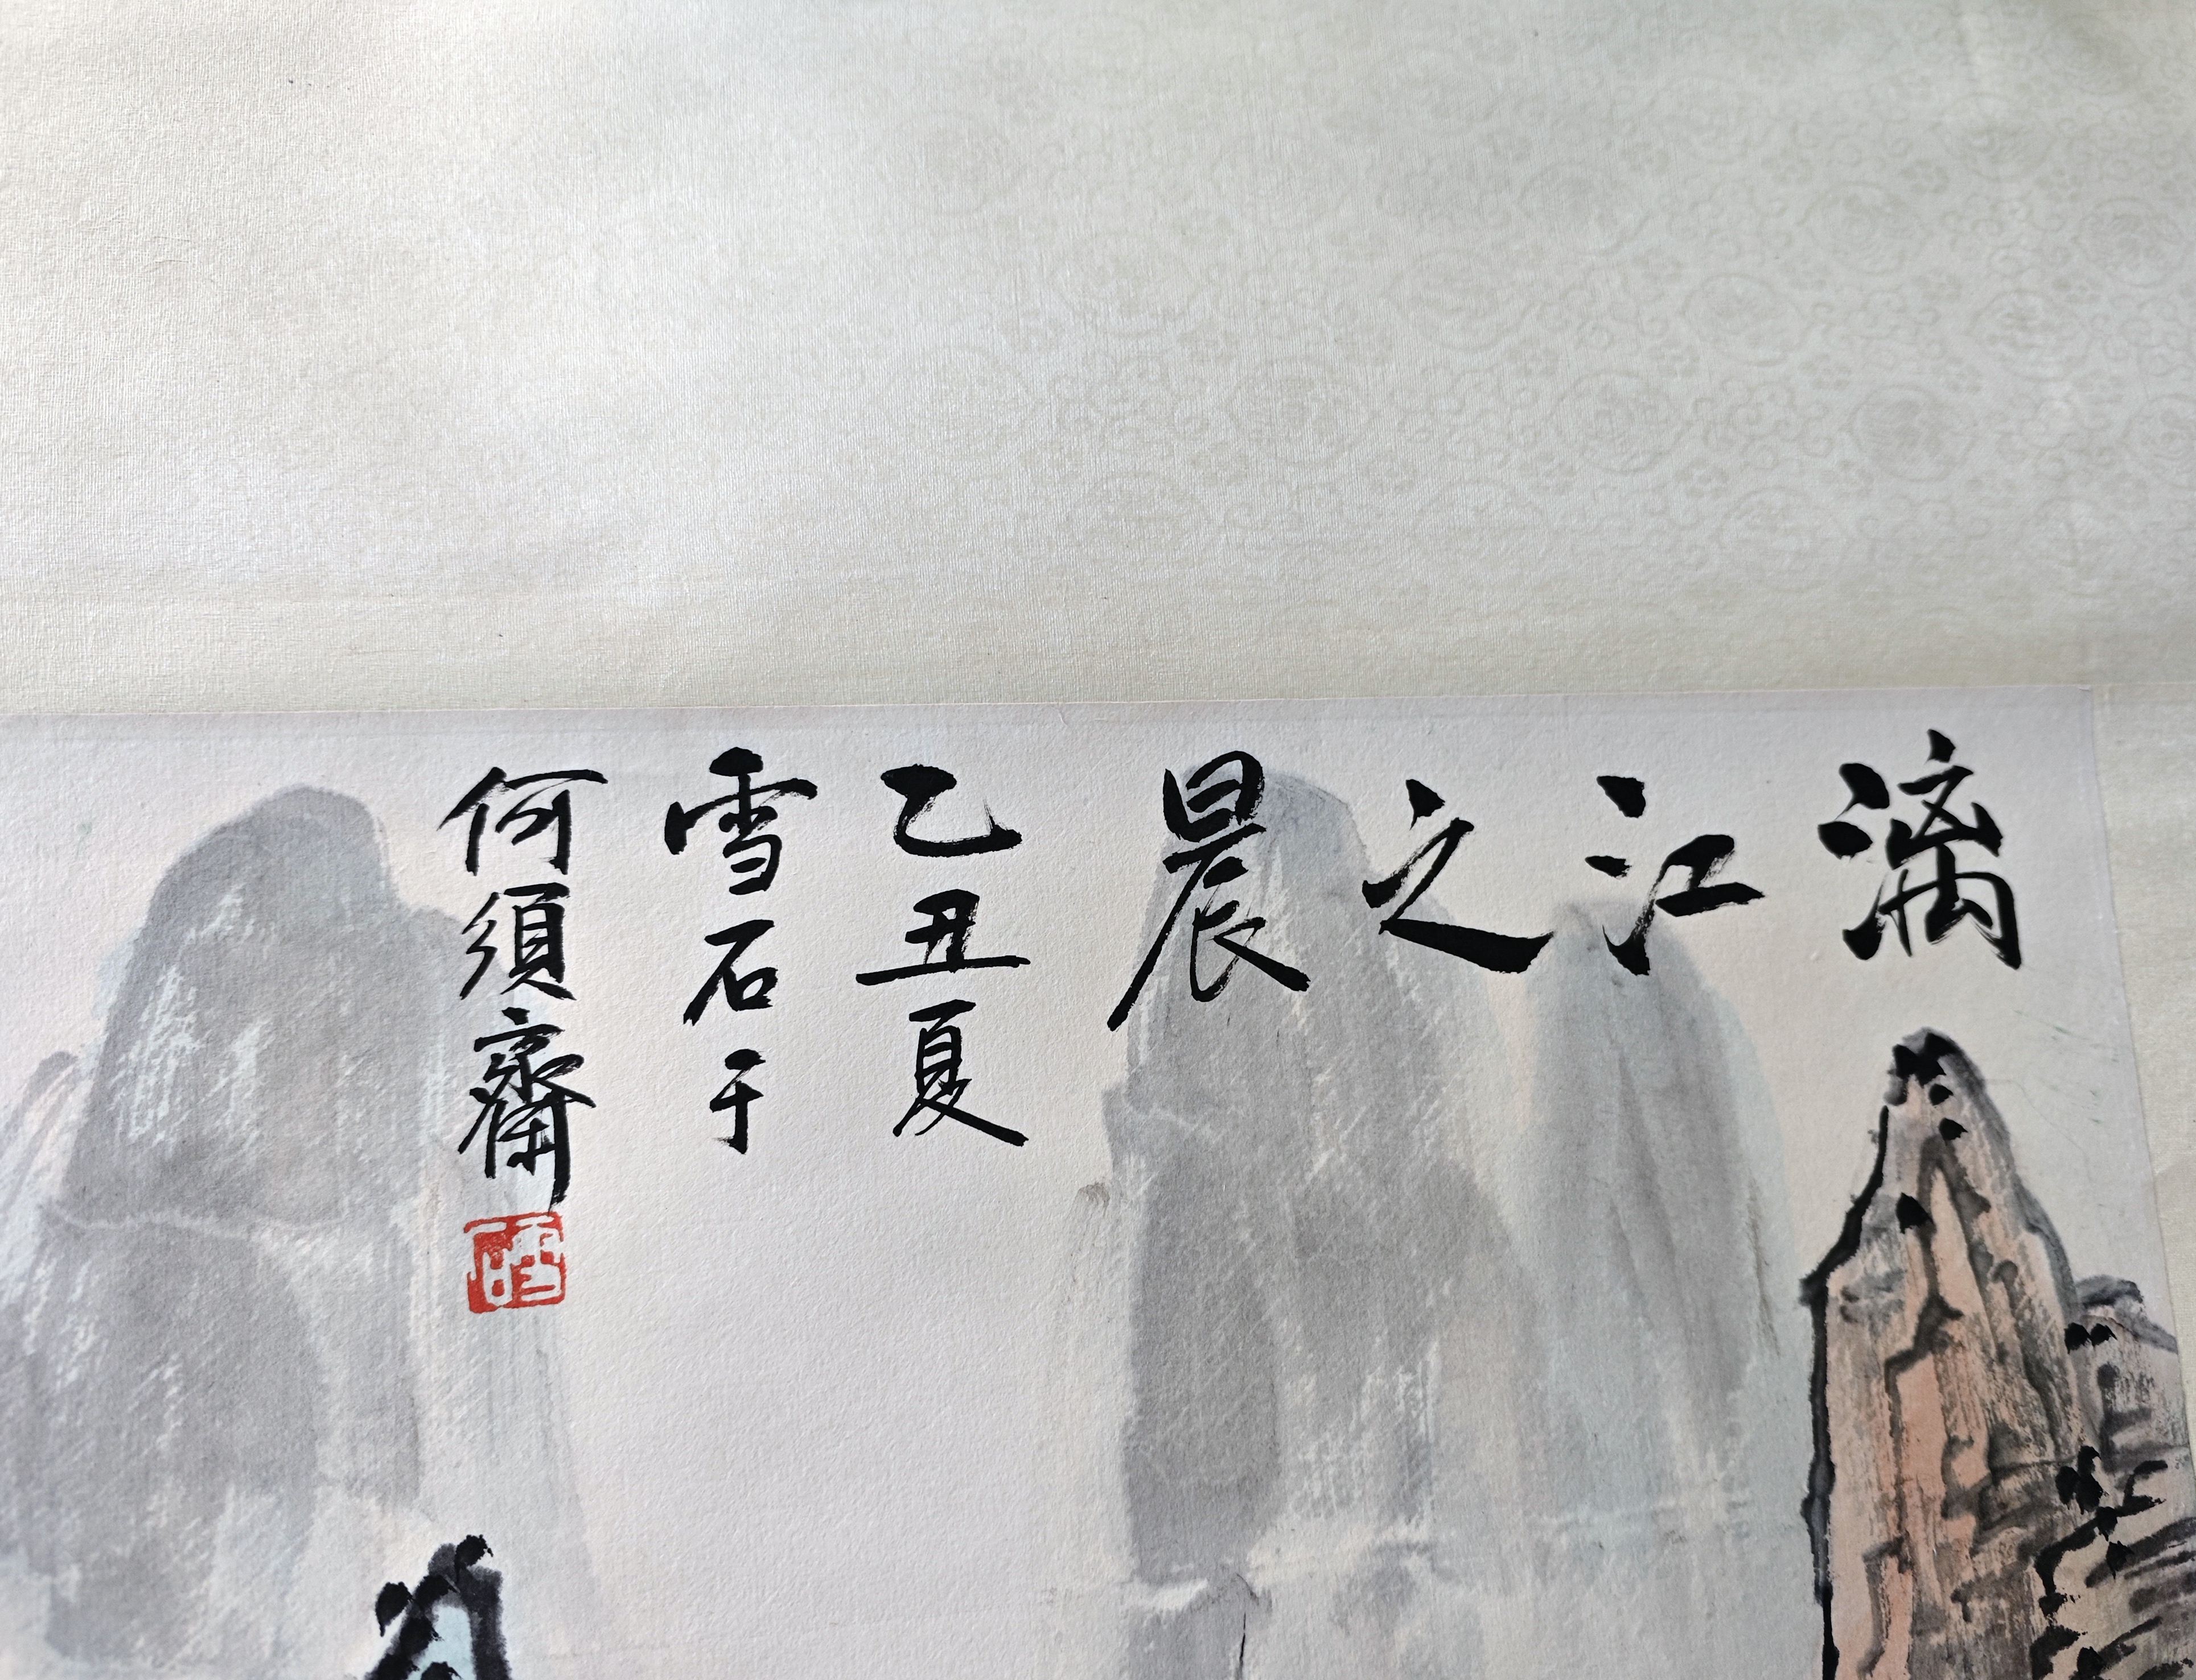 漓江之晨
乙丑夏
雪石于
何須齋